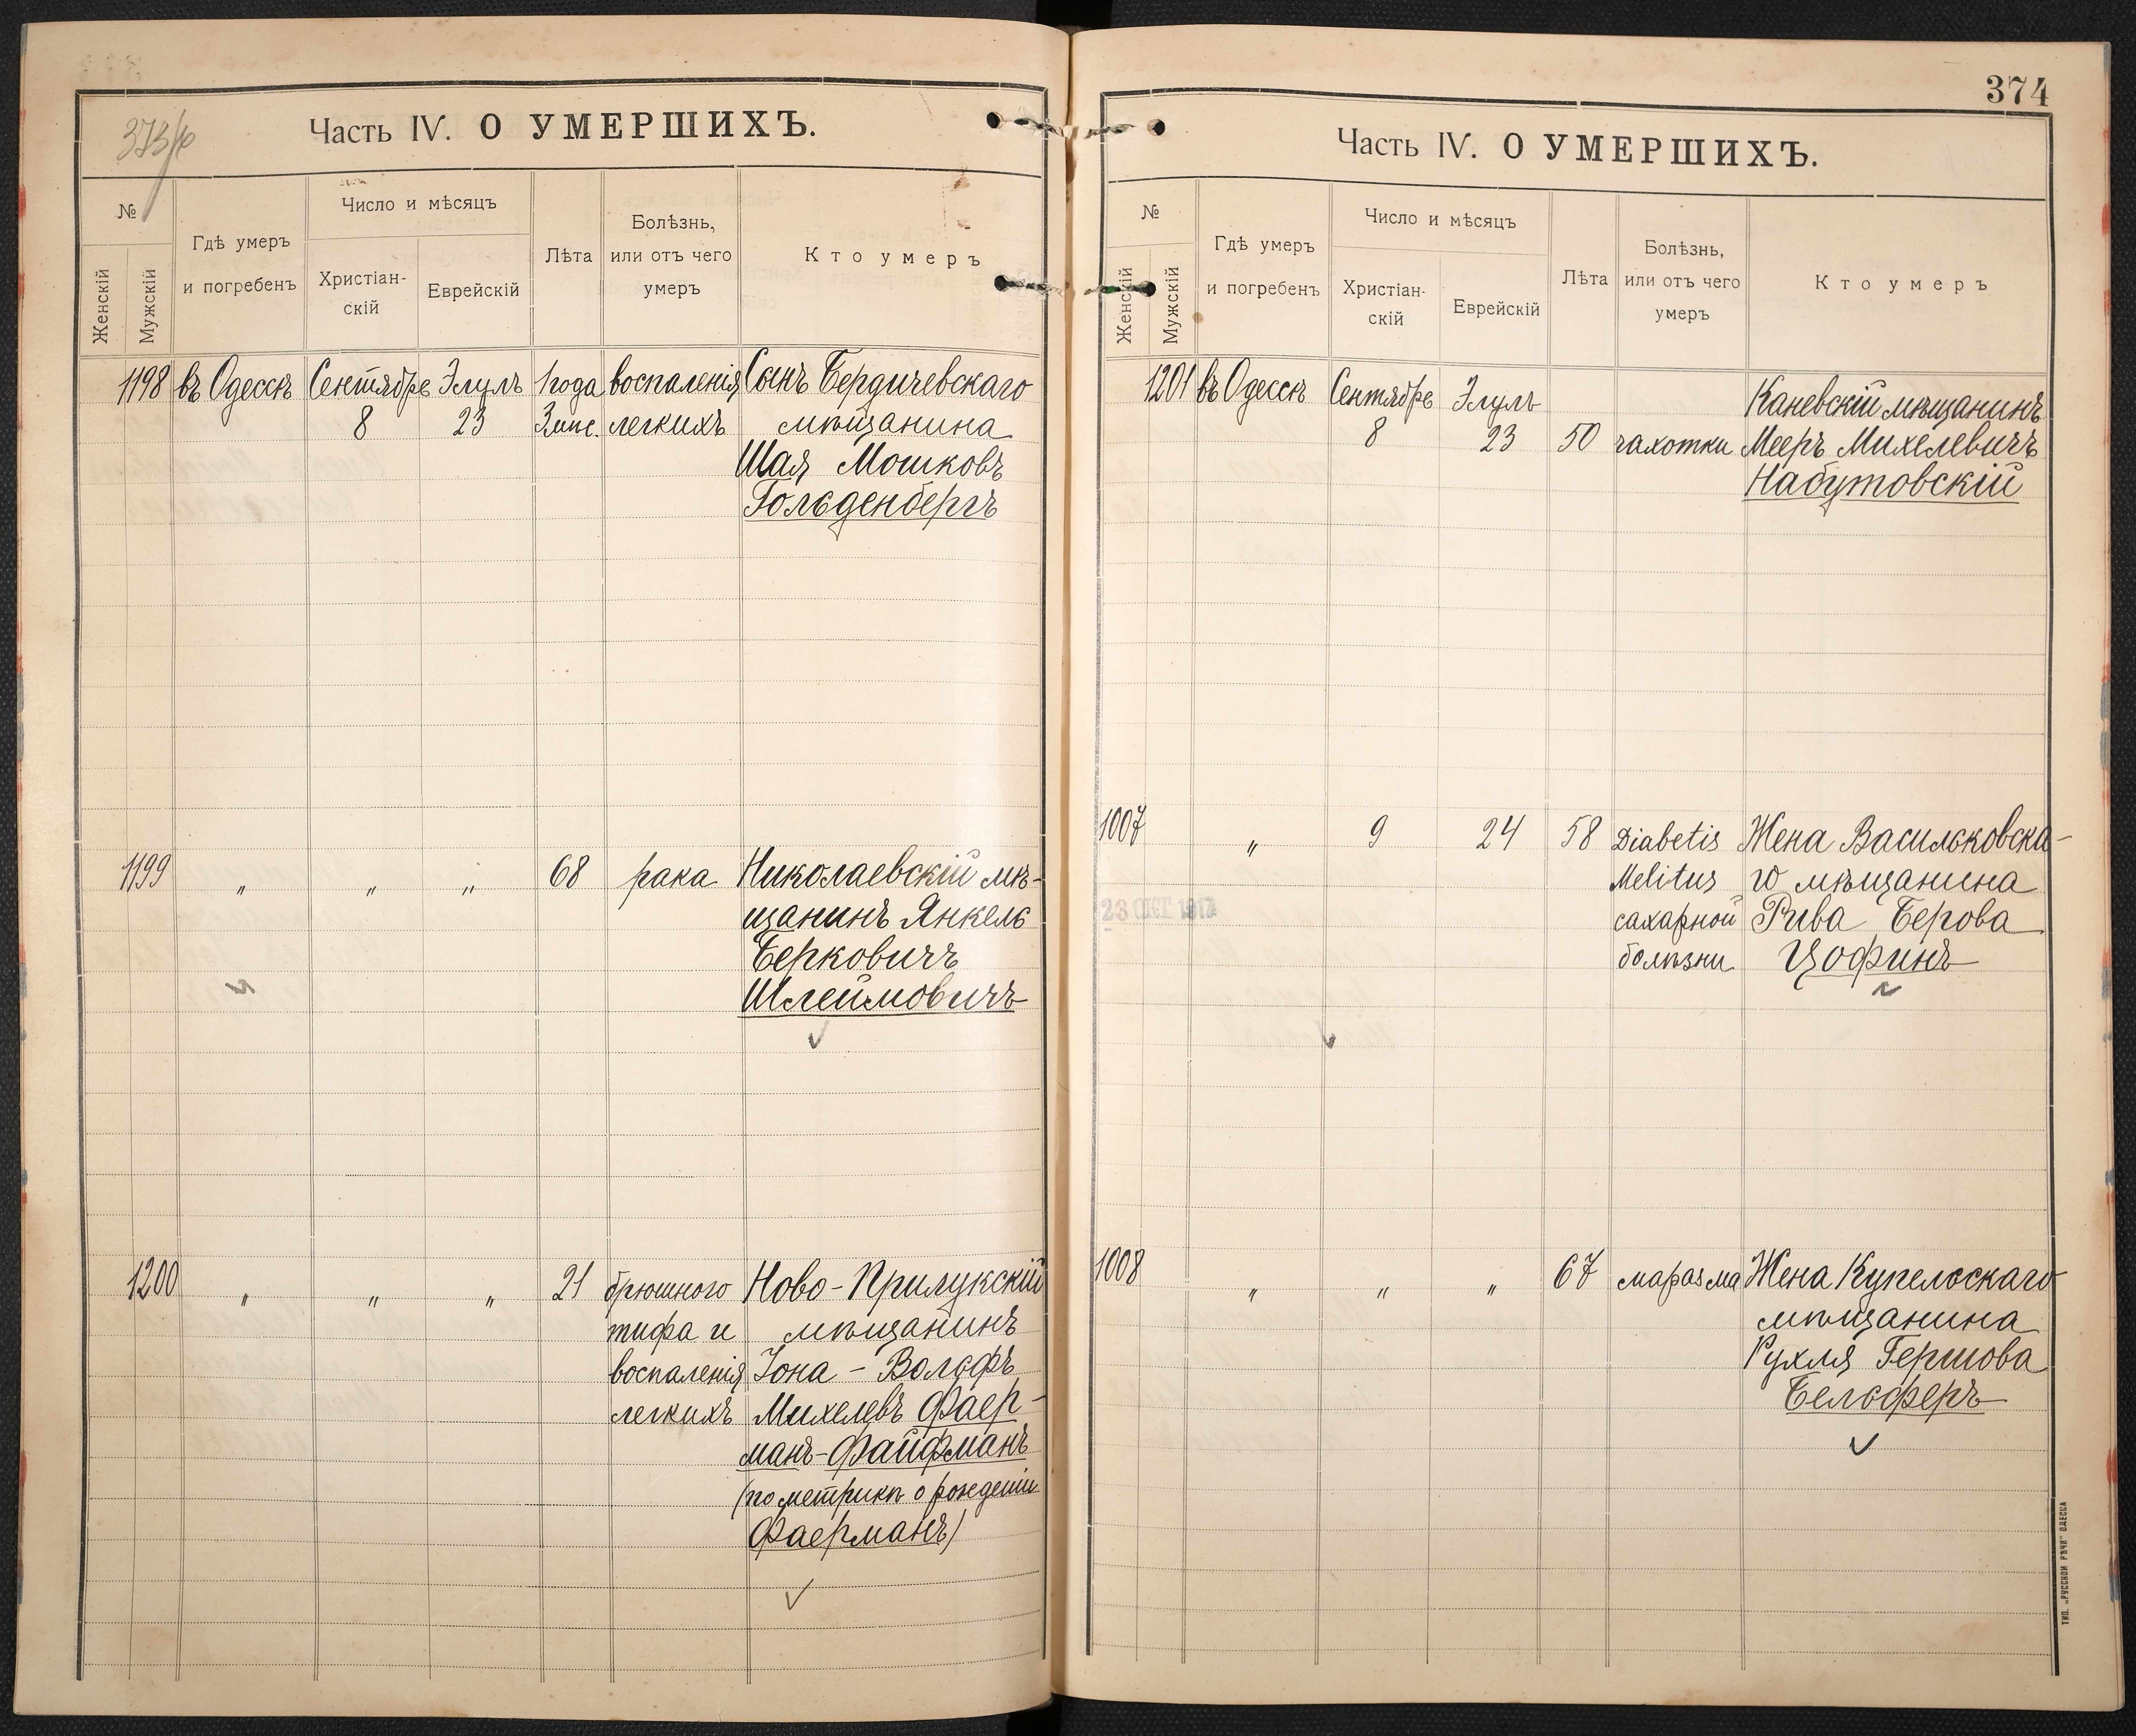 373/об
Часть IV. О УМЕРШИХЪ.
№
Женскій
Мужскій
Гдѣ умеръ
и погребенъ
Число и мѣсяцъ
Христіан-
скій
Еврейскій
Лѣта
Болѣзнь,
или отъ чего
умеръ
Кто умеръ
1198 въ Одессѣ Сентябре Элулъ 1 года воспаленія Сынъ Бердичевскаго
8 23 3 мѣс. легкихъ мѣщанина
Шая Мошковъ
Гольденбергъ
1199 „ „ „ 68 рака Николаевскій мѣ-
щанинъ Янкель
Берковичъ
Шлеймовичъ
1200 „ „ „ 21 брюшного Ново-Прилукскій
тифа и мѣщанинъ
воспаленія Іона-Вольфъ
легкихъ Михелевъ Фаер-
манъ-Файфманъ
(по метрикѣ о рожденіи
Фаерманъ)
374
Часть IV. О УМЕРШИХЪ.
№
Женскій
Мужскій
Гдѣ умеръ
и погребенъ
Число и мѣсяцъ
Христіан-
скій
Еврейскій
Лѣта
Болѣзнь,
или отъ чего
умеръ
Кто умеръ
1201 въ Одессѣ Сентябре Элулъ Каневскій мѣщанинъ
8 23 50 чахотки Мееръ Михелевичъ
Набутовскій
1007 „ 9 24 58 Diabetis Жена Васильковска-
Melitus го мѣщанина
сахарной Рива Берова
болѣзни Цофинъ
23 ОКТ 1912
1008 „ „ „ 67 маразма Жена Купельскаго
мѣщанина
Рухля Гершова
Бельферъ
ТИП. „РУССКОЙ РѢЧИ" ОДЕССА